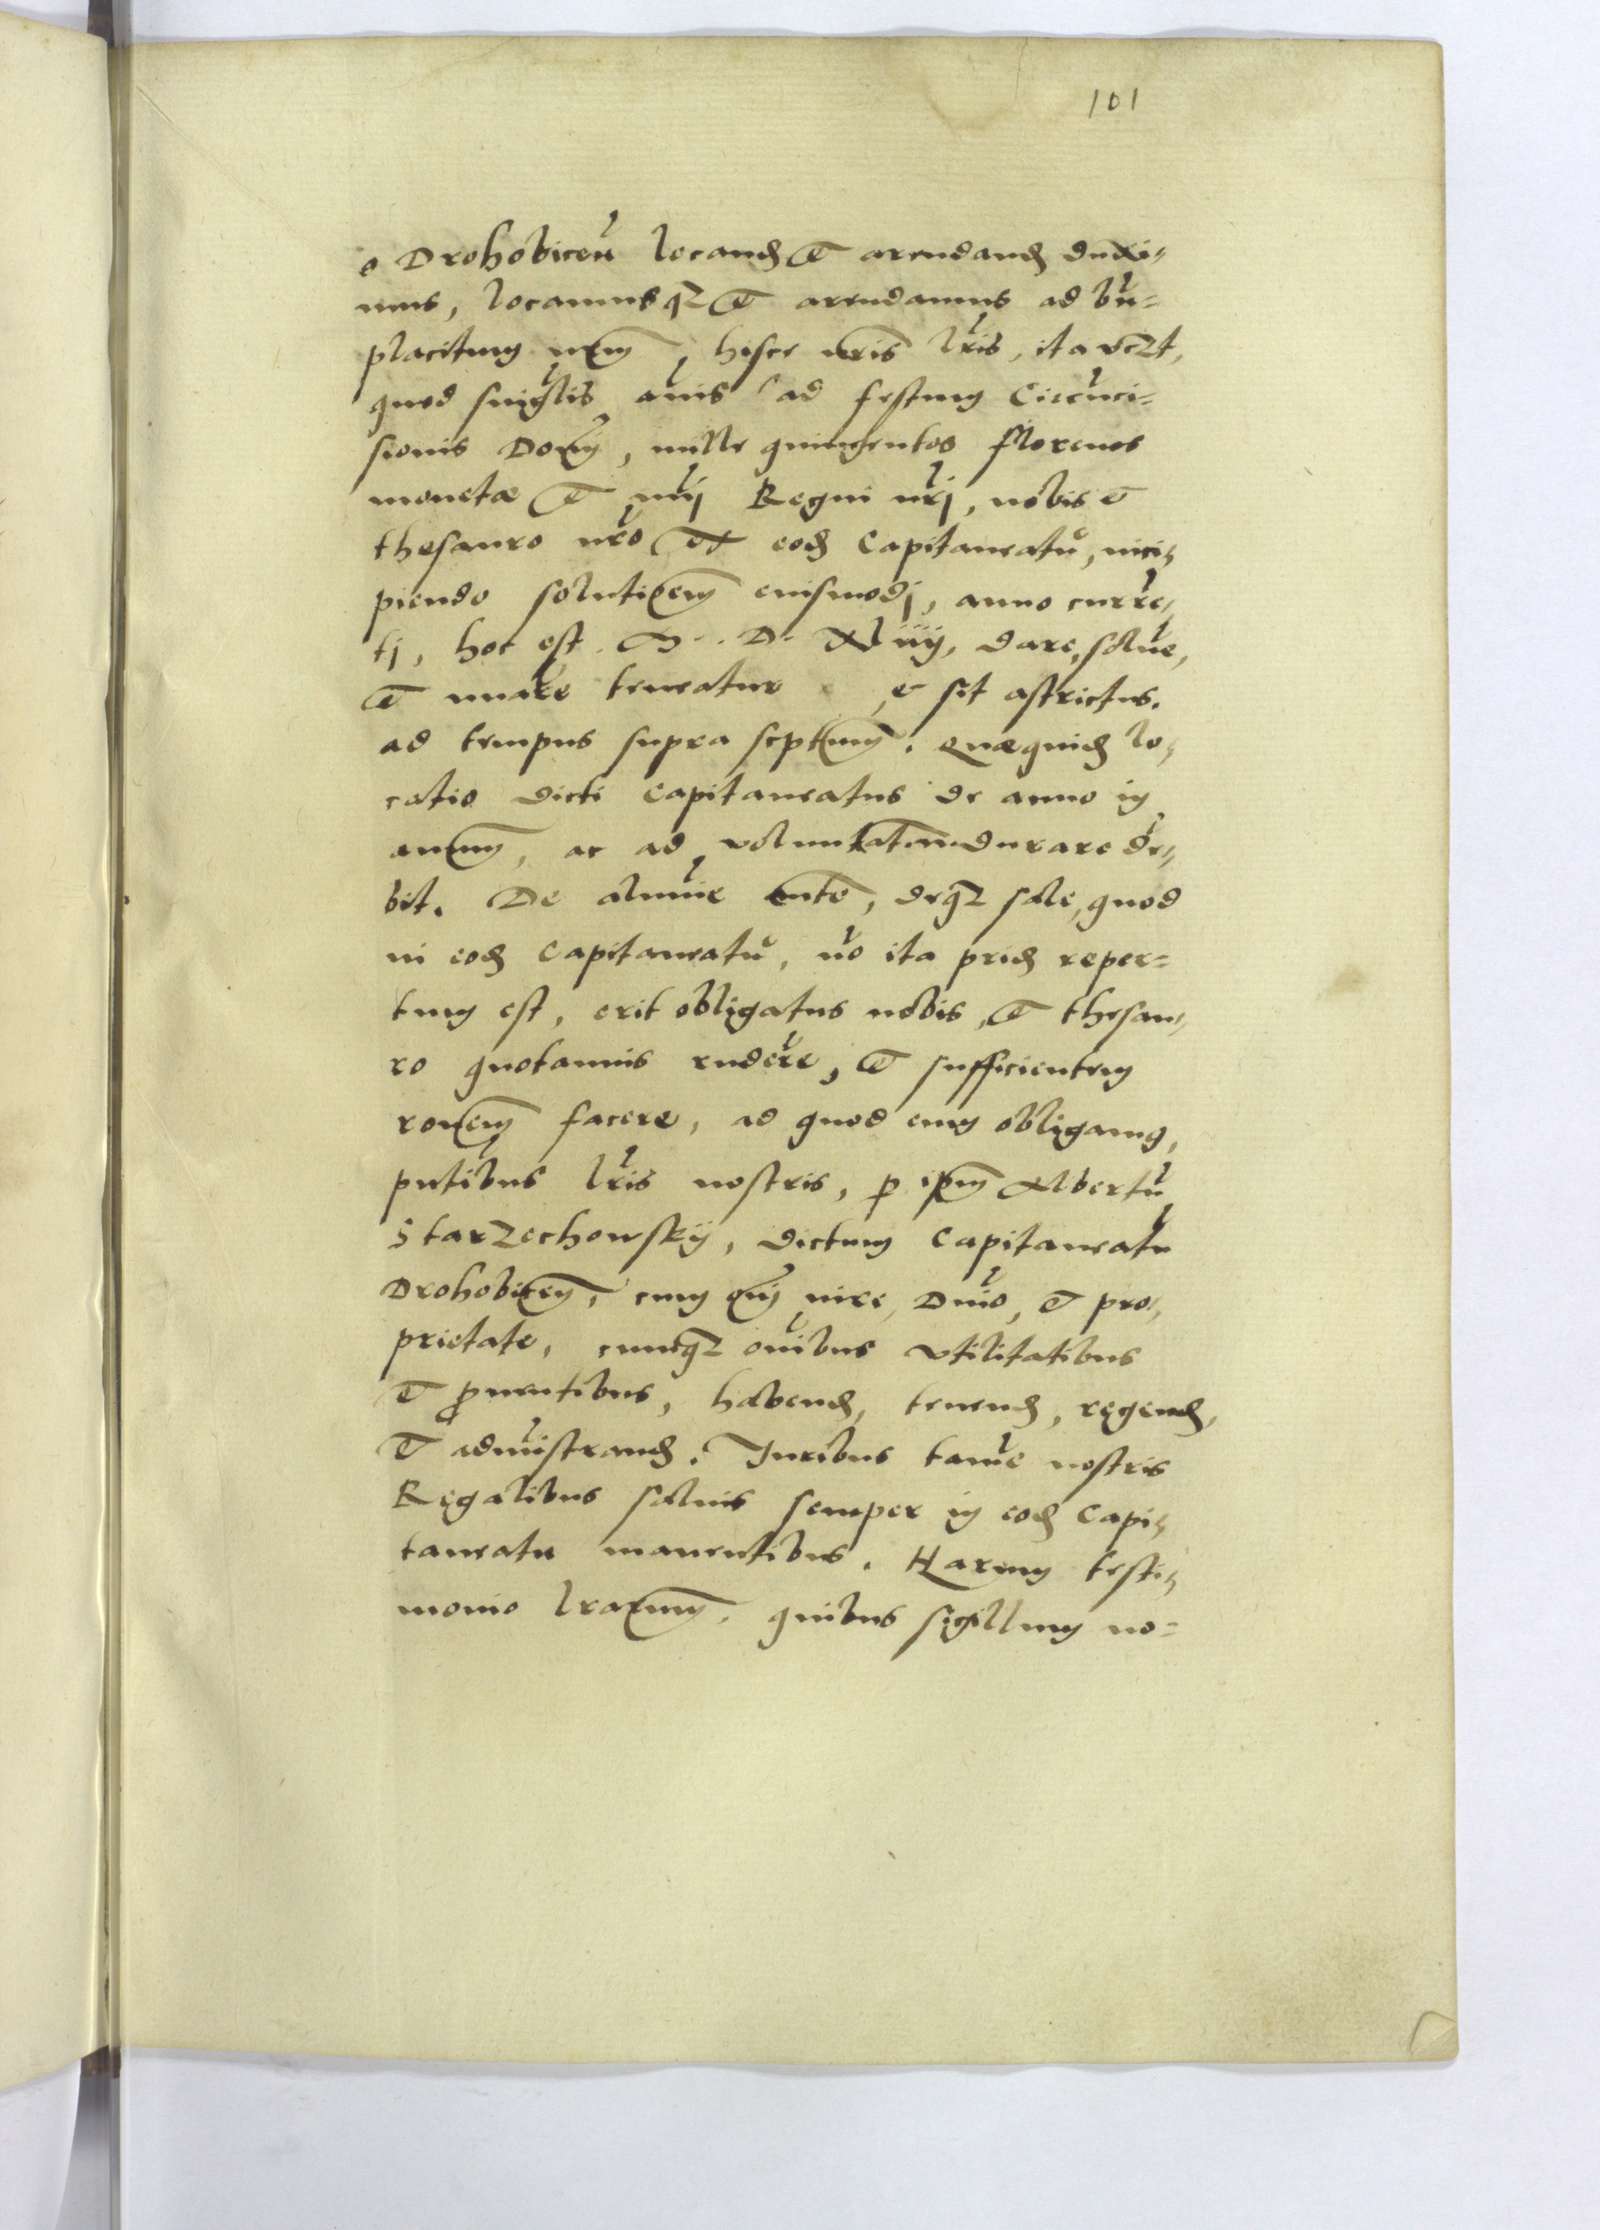 101
o Drohobiceñ locand et arendand duxi-
mus, locamusqz et arendamus ad bñ-
placitum nrm, hisce nris lris, ita vczt,
quod singlis annis ad festum Circũci-
sionis Dom, mille quingentos florenos
monetæ et nũj Regni nrj, nobis et
thesauro nro ex eod Capitaneatũ, inci-
piendo solutioem eiusmodj, anno curre-
tj, hoc est M. D. Xliiij, dare, solue,
et nuare teneatur, et sit astrictus.
ad tempus supra scptum. Quæquid lo-
catio dicti Capitaneatus de anno in
annum, ac ad voluntatem durare de-
bit. De alumie aute, deqz sale, quod
in eod Capitaneatũ, nõ ita prid reper-
tum est, erit obligatus nobis, et thesau-
ro quotannis rndere, et sufficientem
ronem facere, ad quod eum obligamg,
pntibus lris nostris, p ipm Albertũ
Starzechowskÿ, dictum Capitaneatũ
Drohobiceñ, cum om iure, Dnio, et pro-
prietate, cumqz oibus vtilitatibus
et puentibus, habend, tenend, regend,
et admistrand. Juribus tame nostris
Regalibus saluis semper in eod Capi-
taneatu manentibus. Harum testi-
monio lrarum, quibus sigillum no-